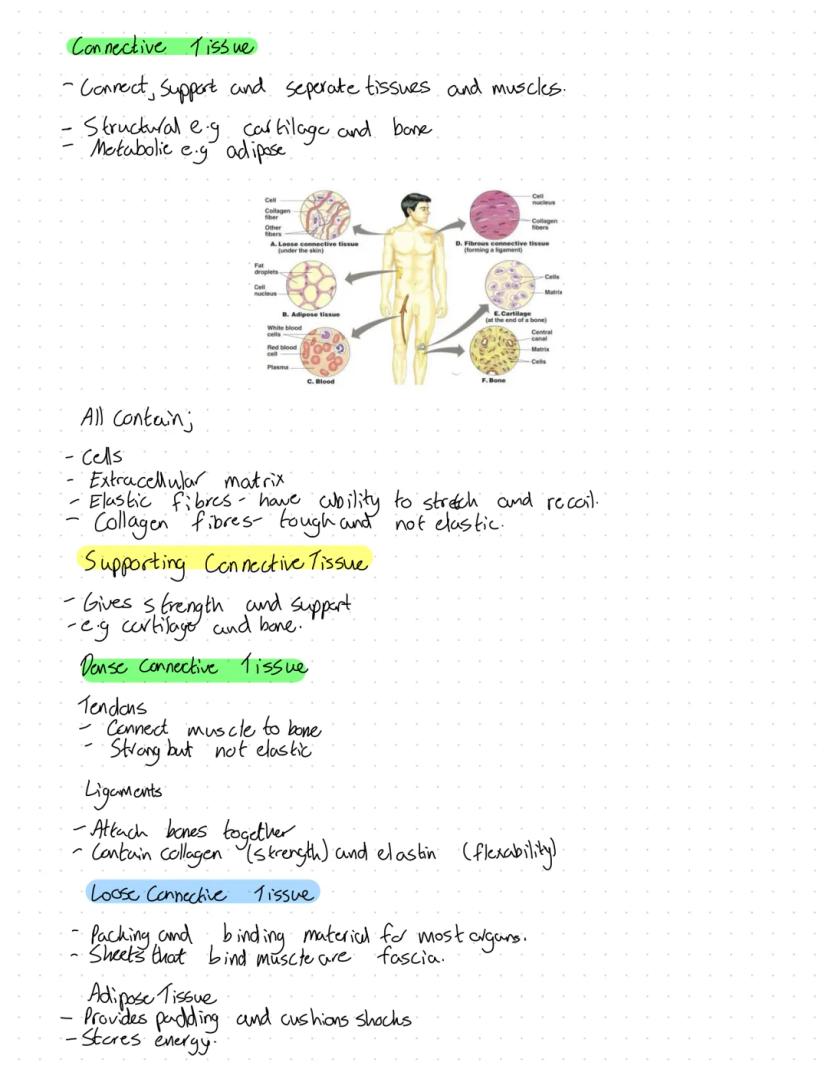 Connective Tissue
- Connect, Support and seperate tissues and muscles.
- Structural e.g cartilage and bone
- Metabolic e.g adipose
Cell
Collagen
fiber
Other
fibers
A. Loose connective tissue
(under the skin)
Cell
nucleus
Collagen
fibers
D. Fibrous connective tissue
(forming a ligament)
Fat
droplets
Cell
nucleus
B. Adipose tissue
Cells
Matrix
E. Cartilage
(at the end of a bone)
White blood
cells
Red blood
cell
Plasma
C. Blood
Central
canal
Matrix
Cells
F. Bone
All contain;
- Cells
- Extracellular matrix
- Elastic fibres - have ability to stretch and recoil.
- Collagen fibres - tough and not elastic.
Supporting Connective Tissue
- Gives strength and support
- e.g cartilage and bone.
Dense Connective Tissue
Tendons
- Connect muscle to bone
- Strong but not elastic
Ligaments
- Attach bones together
- Contain collagen (strength) and elastin (flexability)
Loose Connective Tissue
- Packing and binding material for most organs.
- Sheets that bind muscle are fascia.
Adipose Tissue
- Provides padding and cushions shocks
- Stores energy.